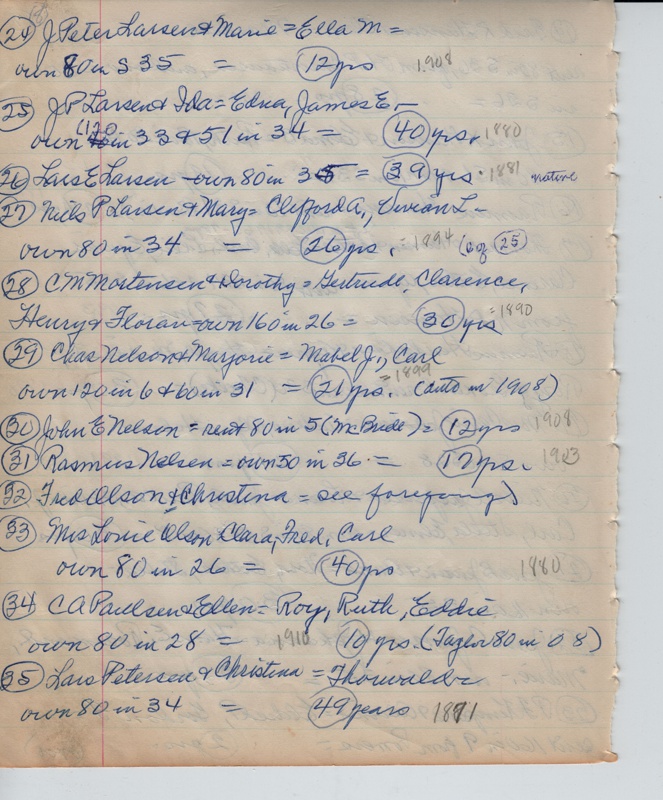 24 J Peter Larsen & Marie = Ella M =
own 80 in S 35 = 12 yrs 1908
25 J P Larsen & Ida = Edna, James E. -
own 120 in 33 & 51 in 34 = 40 yrs, 1880
26 Lars E Larsen - own 80 in 35 = 39 yrs. 1881 native
27 Neils P Larsen & Mary = Clifford A., Vivian L -
own 80 in 34 = 26 yrs, = 1894 (c of 25
28 C M Mortensen & Dorothy = Gertrude, Clarence,
Henry & Floran = own 160 in 26 = 30 yrs = 1890
29 Chas Nelson & Marjorie = Mabel J., Carl
own 120 in 6 & 60 in 31 = 21 yrs. = 1899 (auto in 1908)
30 John E Nelson = rent 80 in 5 (McBride) = 12 yrs 1908
31 Rasmus Nelsen = own 50 in 36. = 17 yrs. 1903
32 Fred Olson & Christina = see foregoing)
33 Mrs Louie Olson Clara, Fred, Carl
own 80 in 26 = 40 yrs 1880
34 C A Paulsen & Ellen = Roy, Ruth, Eddie
own 80 in 28 = 1910 10 yrs. (Taylor 80 in 08)
35 Lars Petersen & Christina = Thorwalde
own 80 in 34 = 49 years 1871